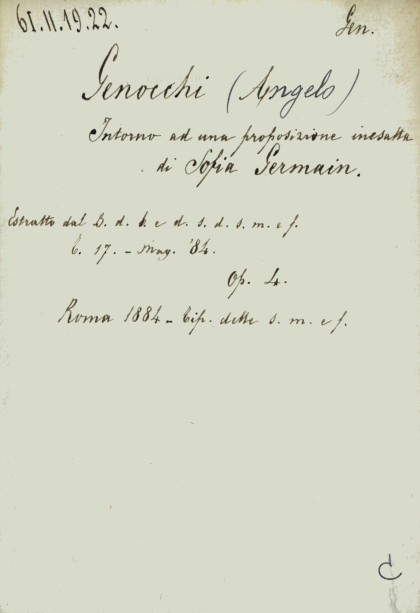 61.11.19.22.
Gen.
Genocchi (Angelo)
Intorno ad una proposizione inesatta
di Sofia Germain.
Estratto dal B. d. b. e d. s. d. s. m. e f.
t. 17. - Mag. '84.
Op. 4.
Roma 1884 - tip. delle s. m. e f.
C